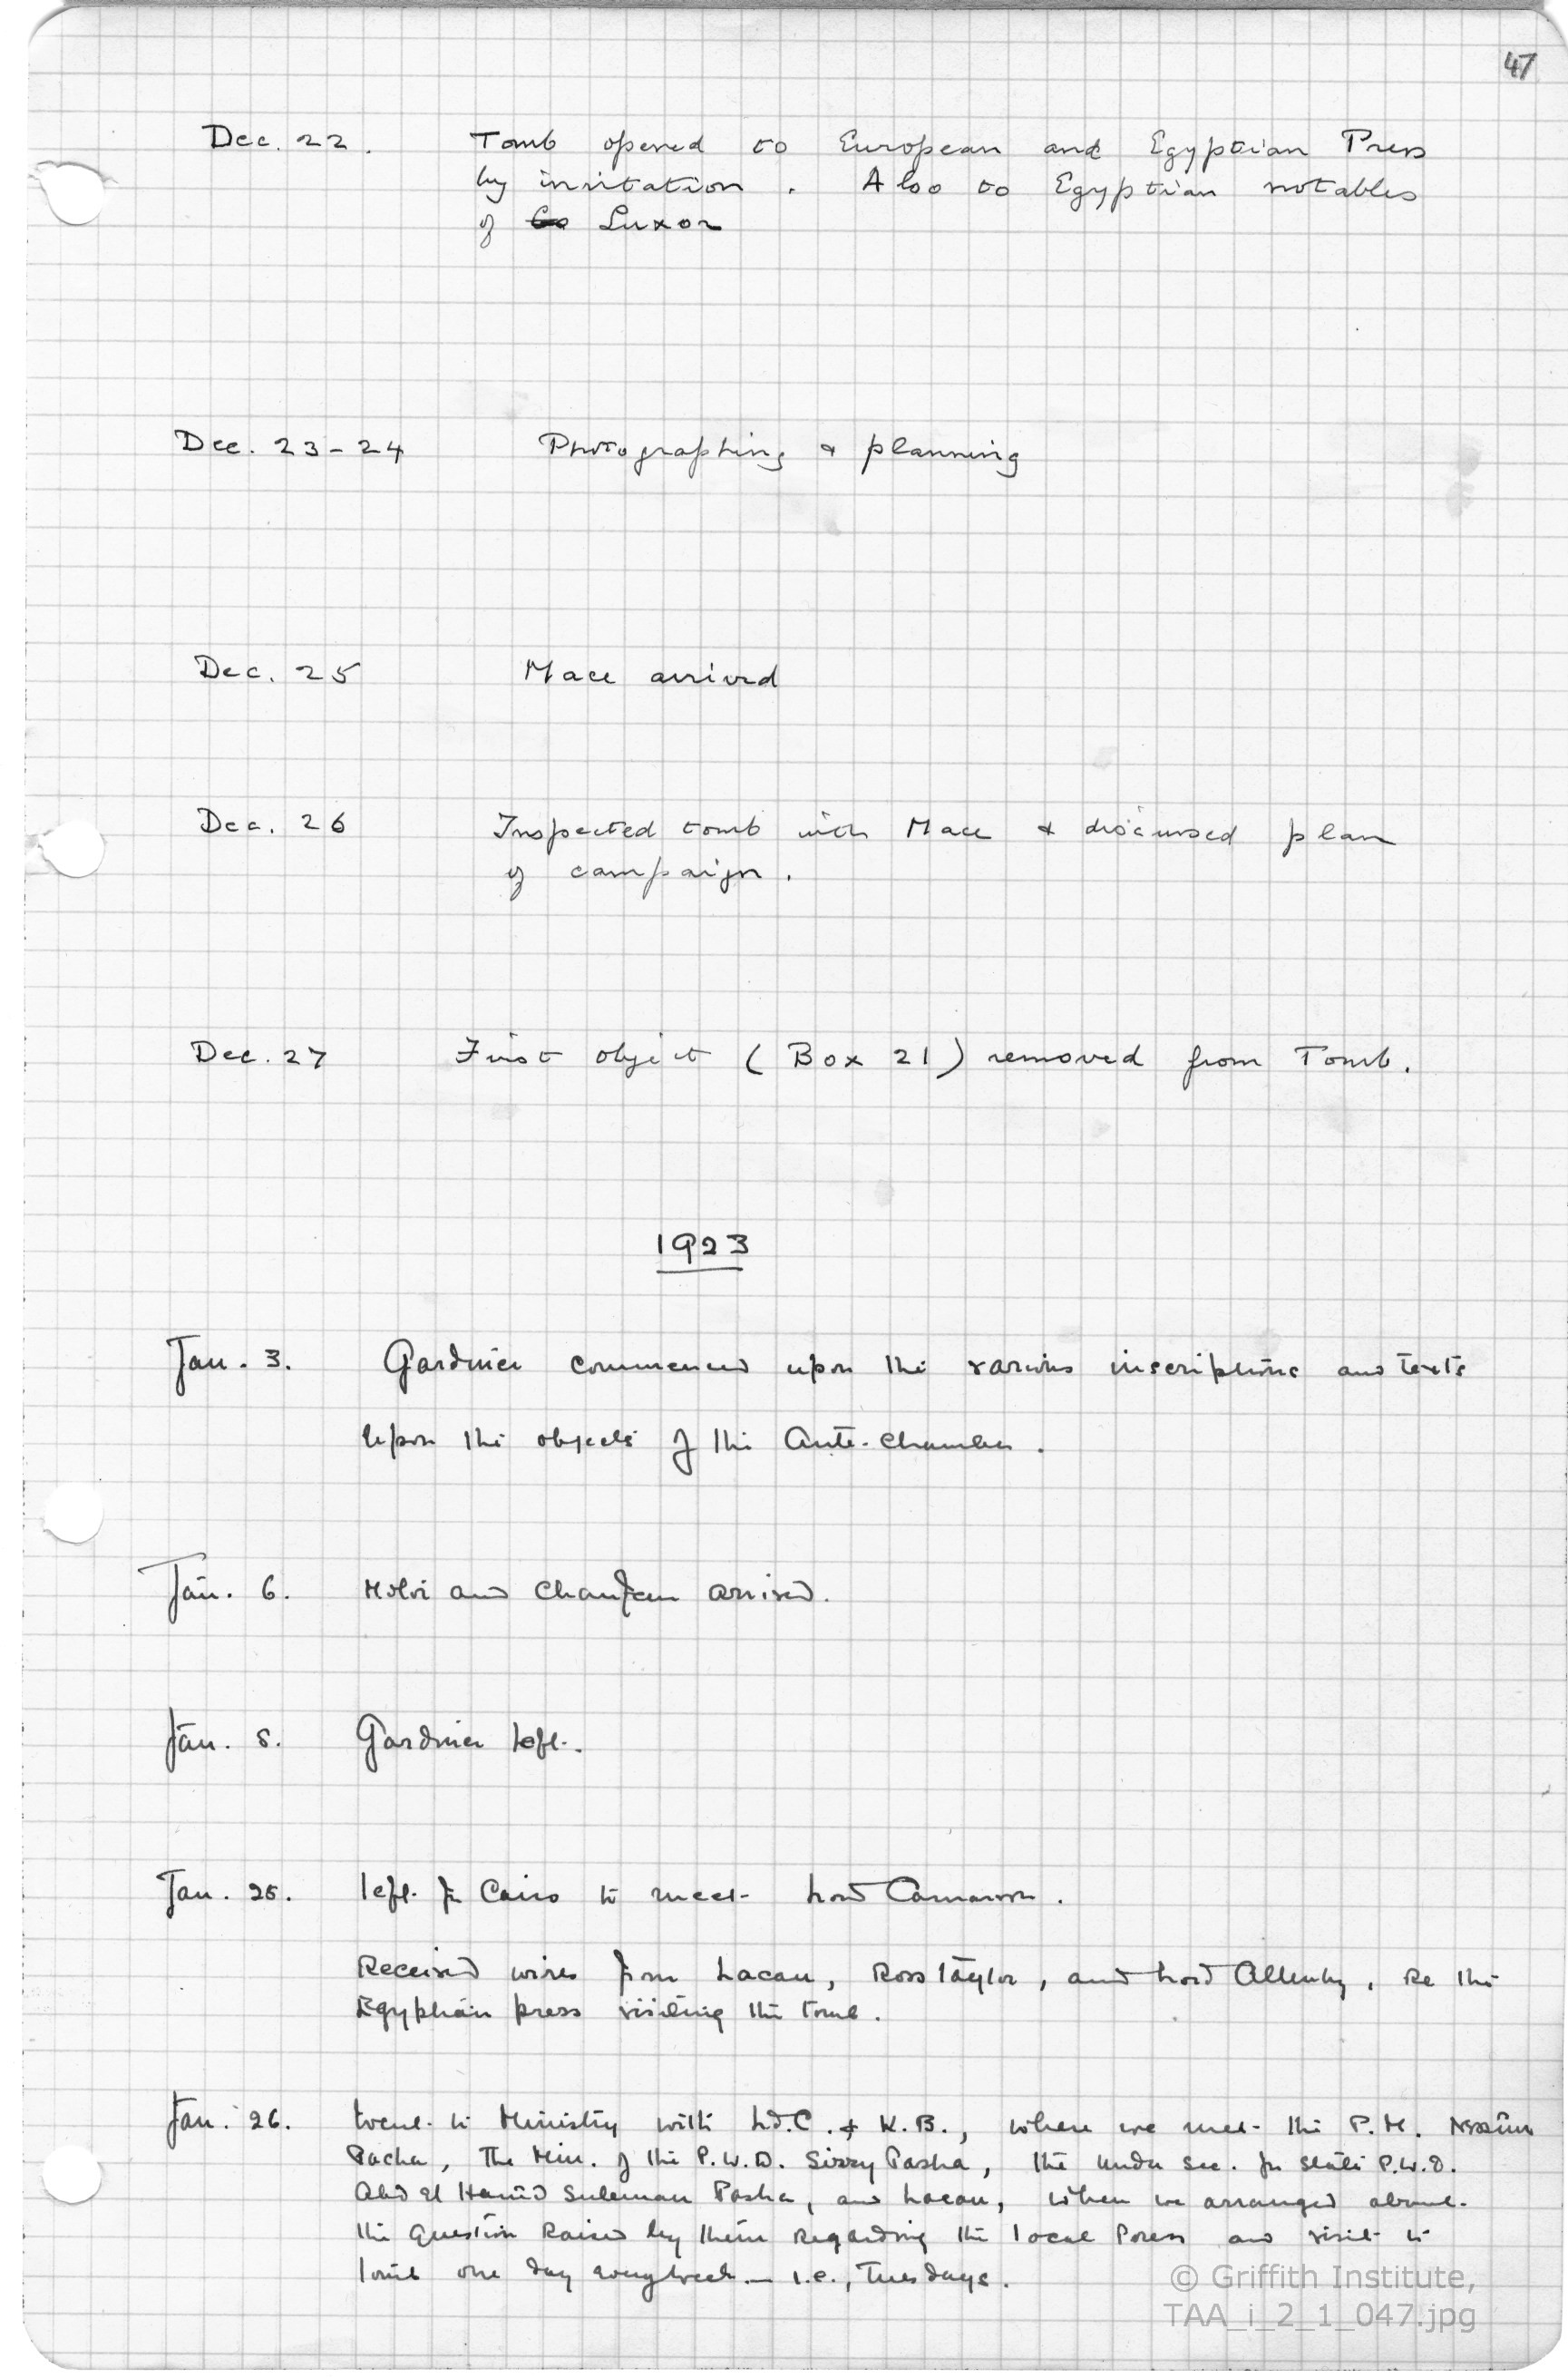 47
Dec. 22. Tomb opened to European and Egyptian Press
by invitation. Also to Egyptian notables
of Luxor
Dec. 23-24 Photographing & planning
Dec. 25 Mace arrived
Dec. 26 Inspected tomb with Mace & discussed plan
of campaign.
Dec. 27 First object (Box 21) removed from Tomb.
1923
Jan. 3. Gardiner commenced upon the various inscriptions and texts
upon the objects of the Ante-chamber.
Jan. 6. and Chaufeur arrived.
Jan. 8. Gardiner left.
Jan. 25. left for Cairo to meet Lord Carnarvon.
Received wires from Lacau, Ross Taylor, and Lord Allenby, Re the
Egyptian press visiting the tomb.
Jan. 26. Went to Ministry with Ld. C. & K.B., where we met the P.M.
Pacha, The Min. of the P.W.D. Sirry Pasha, the Under Sec. for State P.W.D.
Abd El Hamid Suleman Pasha, and Lacau, when we arranged about
the question raised by them regarding the local Press and visit to
tomb one day every week — i.e., Tuesdays.
© Griffith Institute,
TAA_i_2_1_047.jpg